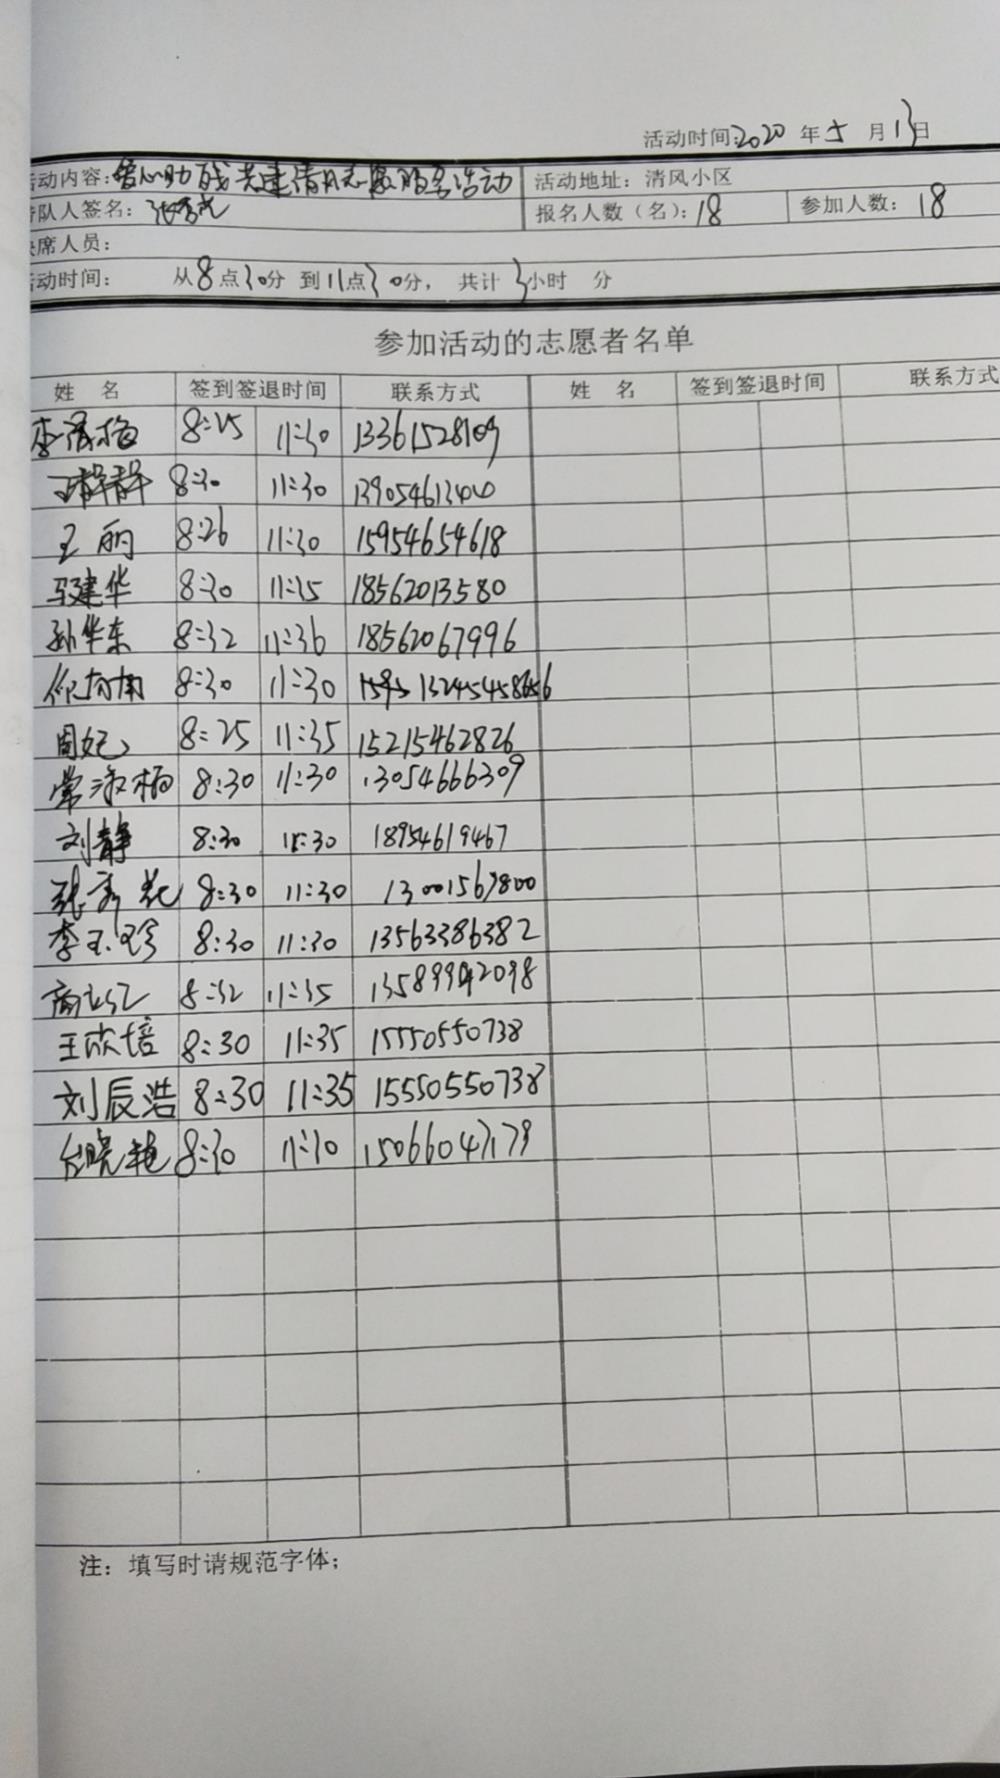 活动时间:2020 年 5 月 13日
动内容: 爱心助残 共建清风志愿服务活动 活动地址: 清风小区
队人签名: 张秀花 报名人数(名): 18 参加人数: 18
席人员:
动时间: 从8点30分 到11点30分, 共计 3小时 分
参加活动的志愿者名单
姓 名 签到签退时间 联系方式 姓 名 签到签退时间 联系方式
李淑梅 8:25 11:30 13361528109
王静静 8:30 11:30
王丽 8:26 11:30 15954654618
马建华 8:30 11:35 18562013580
孙华东 8:32 11:36 18562067996
8:30 11:30
周妃 8:25 11:35 15215462826
常淑梅 8:30 11:30 13054666309
刘静 8:30 11:30 18954619467
张秀花 8:30 11:30 13001567800
李玉珍 8:30 11:30 13563386382
商立红 8:32 11:35
王欣培 8:30 11:35 15550550738
刘辰浩 8:30 11:35 15550550738
台晓艳 8:30 11:30 15066047179
注: 填写时请规范字体;